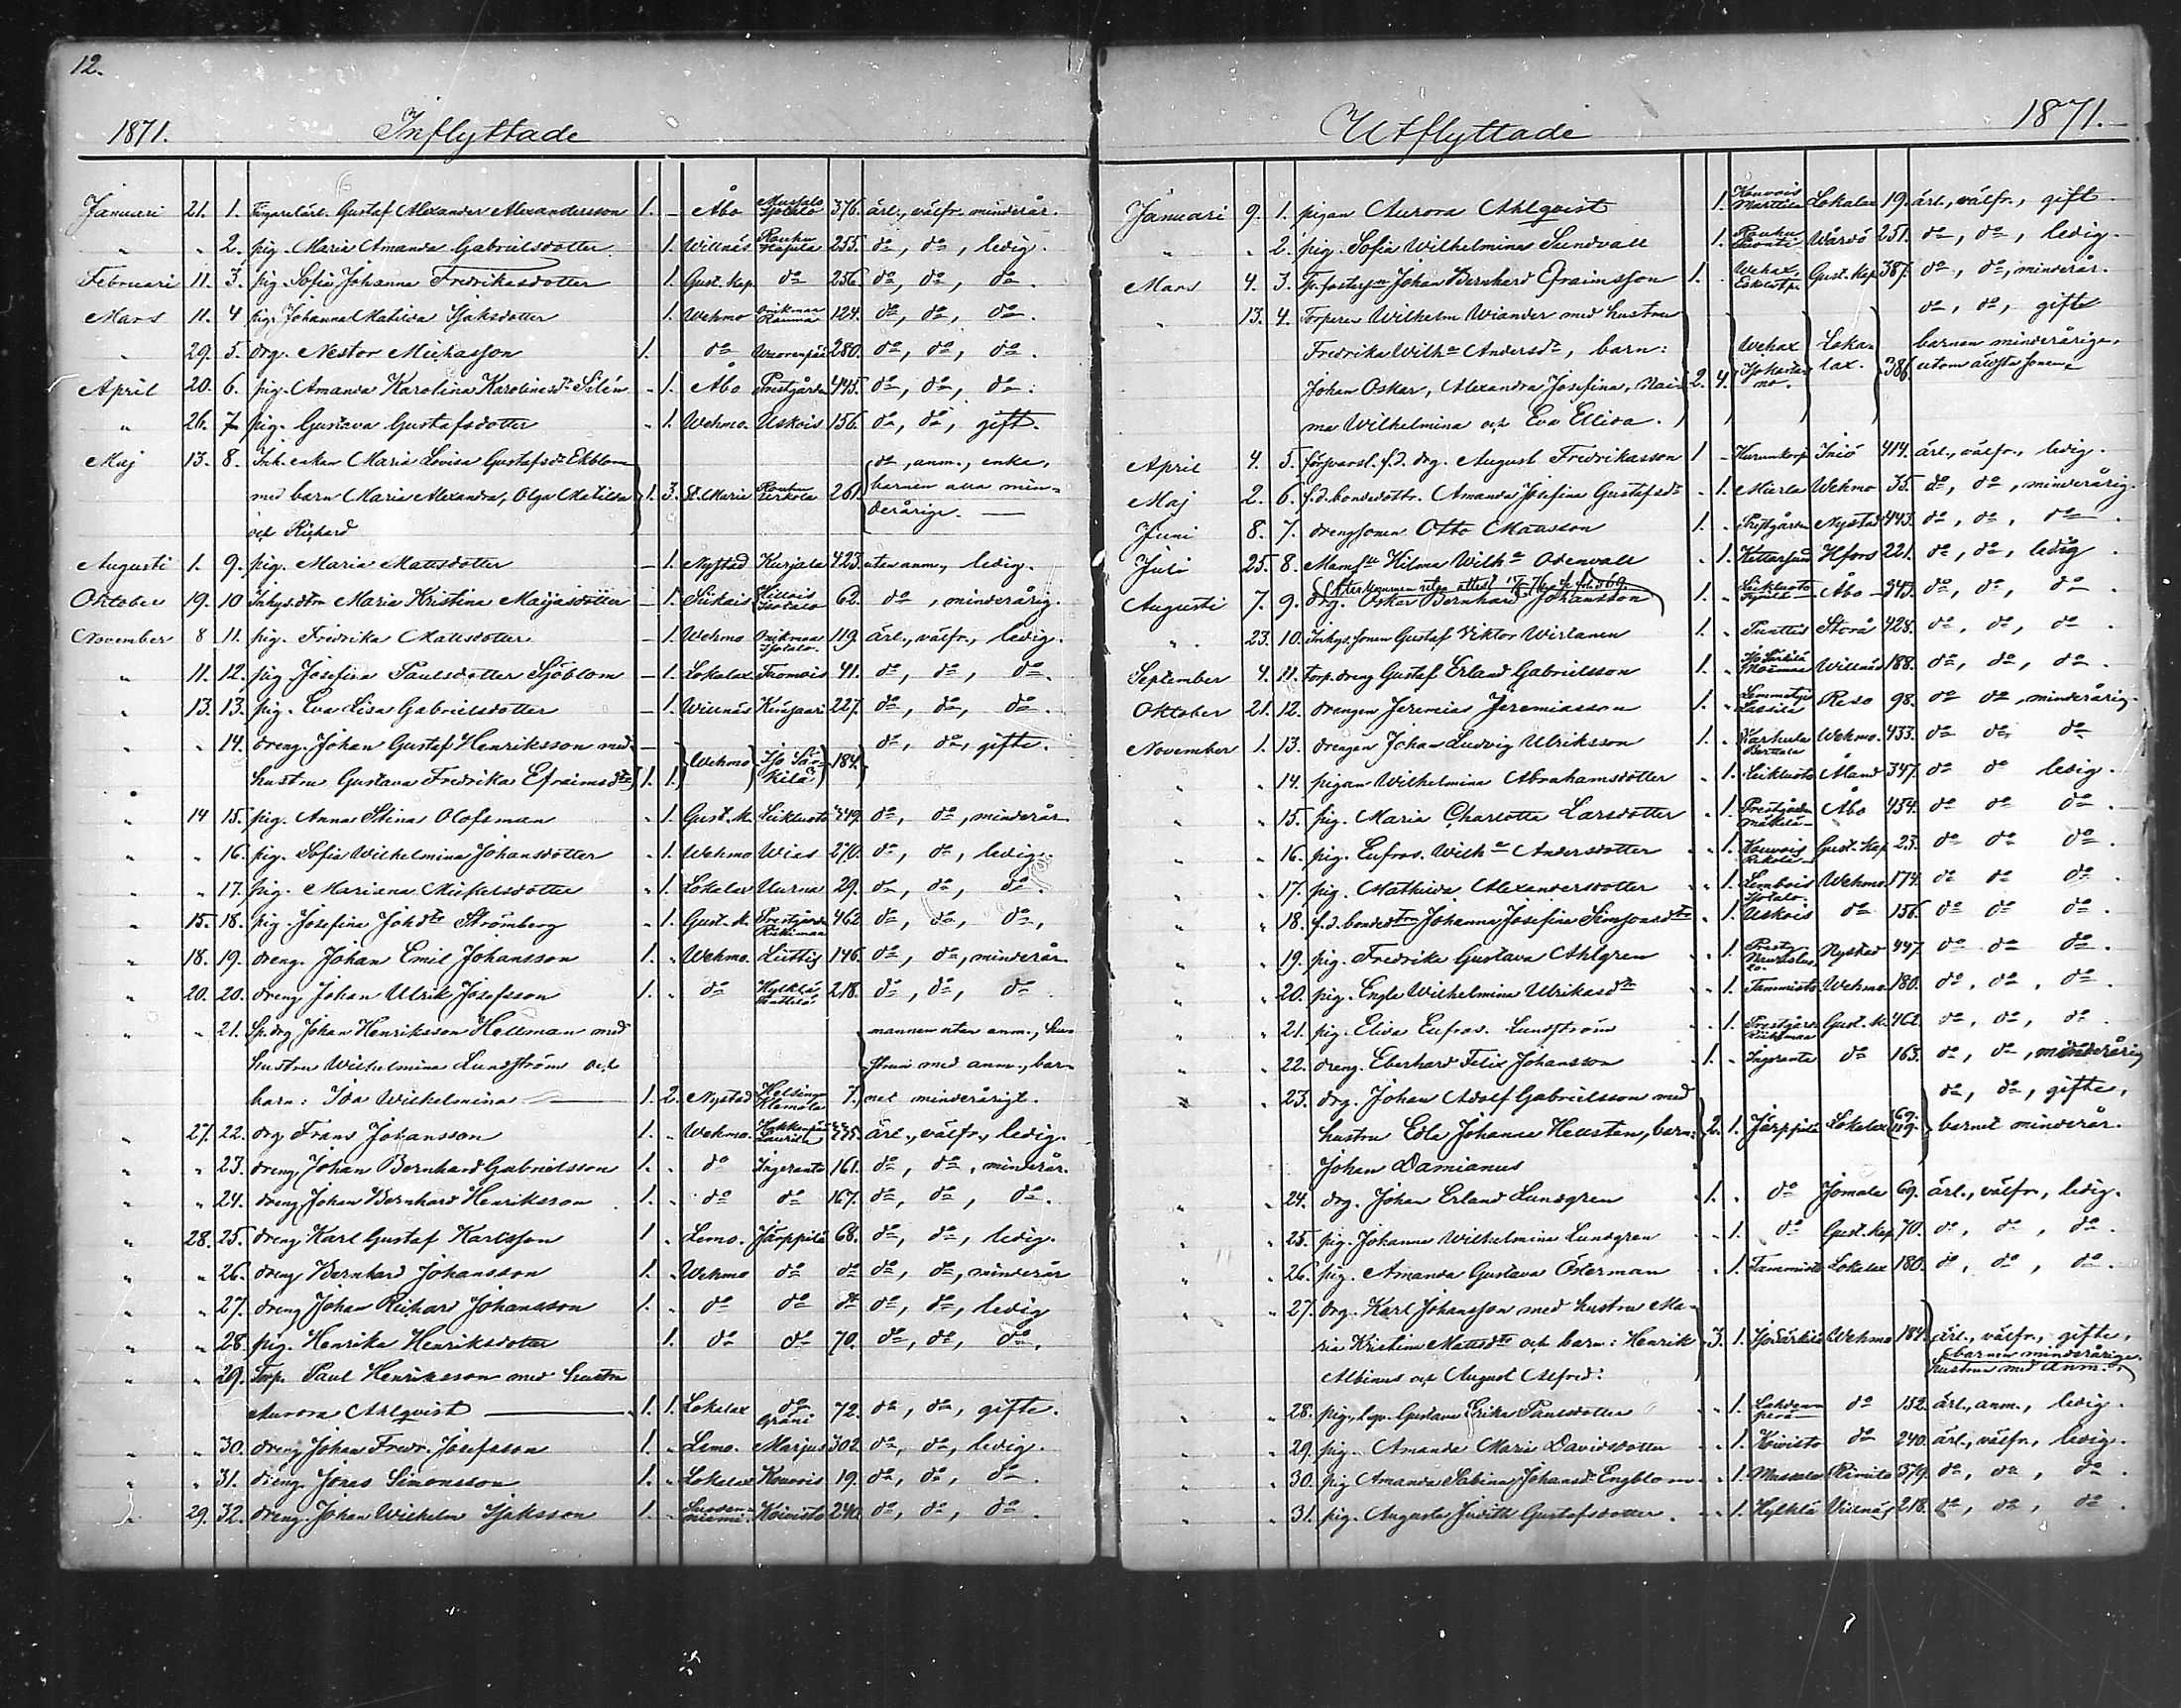 12.
1871. Inflyttade
Januari 21. 1. Gustaf Alexander Alexandersson 1. – Åbo 376. ärl., välfr. minderår.
" " 2. pig. Maria Amanda Gabrielsdotter 1. Willnäs 255. do, do, ledig.
Februari 11. 3. pig. Sofia Johanna Fredriksdotter 1. Gust. Kap. do 256. do, do, do.
Mars 11. 4 pig. Johanna Matilda Isaksdotter 1. Wehmo 124. do, do, do.
" 29. 5. drg. Nestor Michasson 1. do 280. do, do, do.
April 20. 6. pig. Amanda Karolina Karolinesdr Silén " 1. Åbo Prestgården 445. do, do, do.
" 26. 7 pig. Gustava Gustafsdotter " 1. Wehmo. Uskois 156. do, do, gift.
Maj 13. 8. Inh. enkan Maria Lovisa Gustafsdr Ekblom do, anm., enka,
med barn Maria Alexandra, Olga Matilda 1. 3. St. Marie 261. barnen alla min-
och Richard derårige. —
Augusti 1. 9. pig. Maria Mattsdotter – 1. Nystad Kurjala 423. utan anm., ledig.
Oktober 19. 10 Inhys.dtrn Maria Kristina Maijasdotter – 1. 62. do, minderårig.
November 8 11. pig. Fredrika Mattsdotter – 1. Wehmo 119. ärl., välfr., ledig.
" 11. 12. pig Josefina Paulsdotter Sjöblom – 1. Lokalax Tromois 41. do, do, do.
" 13. 13. pig. Eva Lisa Gabrielsdotter – 1. Willnäs 227. do, do, do.
" " 14. dreng. Johan Gustaf Henriksson med – do, do, gifte.
hustru Gustava Fredrika Efraimsdtr 1. 1. Wehmo 184.
" 14 15. pig. Anna Stina Olofsman " 1. Gust. K. Seikluoto 349. do, do, minderår.
" " 16. pig. Sofia Wilhelmina Johansdotter " 1. Wehmo Wias 270. do, do, ledig.
" " 17. pig. Mariana Michelsdotter " 1. Lokalax Uurna 29. do, do, do.
" 15. 18. pig. Josefina Johdtr Strömberg " 1. Gust. K. Prestgården 462 do, do, do,
" 18. 19. dreng. Johan Emil Johansson 1. " Wehmo. Lüttig 146. do, do, minderår.
" 20. 20. dreng Johan Ulrik Josefsson 1. " do Hylkilä 218. do, do, do.
" " 21. Sp.drg Johan Henriksson Hellman med mannen utan anm., hu-
hustru Wilhelmina Lundström och strun med anm., bar-
barn: Ida Wilhelmina — 1. 2. Nystad Helsinge 7. net minderårigt.
" 27. 22. drg Frans Johansson 1. " Wehmo. 275. ärl., välfr., ledig.
" " 23. dreng Johan Bernhard Gabrielsson 1. " do Ingeranto 161. do, do, minderår.
" " 24. dreng Johan Bernhard Henriksson 1. " do do 167. do, do, do.
" 28. 25. dreng Karl Gustaf Karlsson 1 " Lemo. Järppilä 68. do, do, ledig.
" " 26. dreng Bernhard Johansson 1. " Wehmo do do do, do, minderår
" " 27. dreng Johan Richard Johansson 1. " do do do do, do, ledig
" " 28. pig. Henrika Henriksdotter 1. do do 70. do, do, do.
" " 29. Torp. Paul Henriksson med hustru
Aurora Ahlqvist — 1. 1. Lokalax do Gräni 72. do, do, gifte.
" " 30. dreng Johan Fredr. Josefsson 1. " Lemo. Marjus 302. do, do, ledig.
" " 31. dreng. Jonas Simonsson 1. " Lokalax Kouvois 19. do, do, do.
" 29. 32. dreng. Johan Wilhelm Isaksson 1. " Koivisto 240. do, do, do.
Utflyttade 1871.
Januari 9. 1. pigan Aurora Ahlqvist 1. Kouvois Marttila Lokalax 19. ärl., välfr., gift.
" " 2. pig. Sofia Wilhelmina Sundvall 1. Wårdö 251. do, do, ledig.
Mars 4. 3. Johan Bernhard Efraimsson 1. Gust. Kap. 387. do, do, minderår.
" 13. 4. Torparen Wilhelm Wiander med hustru do, do, gifte
Fredrika Wilha Andersdr, barn: Wehax Loka- barnen minderårige,
Johan Oskar, Alexandra Josefina, Nai- 2. 4. lax. 386. utom äldsta sonen.
ma Wilhelmina och Eva Ellida.
April 4. 5. f.d. drg. August Fredriksson 1 – Iniö 414. ärl., välfr., ledig.
Maj 2. 6. f.d. bondedottr. Amanda Josefina Gustafsdr " 1. Mierla Wehmo 35. do, do, minderårig.
Juni 8. 7. drengsonen Otto Mattsson 1. " Prestgården Nystad 443. do, do, do.
Juli 25. 8. Mamsll Hilma Wilha Odenvall " 1. Kettersund Hfors 221. do, do, ledig.
Augusti 7. 9. drg. Oskar Bernhard Johansson 1. " Seikluoto Åbo 343. do, do, do.
" 23. 10. Inhys.sonen Gustaf Viktor Wirtanen 1. " Tunttis Storå 428. do, do, do.
September 4. 11. Torp.dreng Gustaf Erland Gabrielsson 1. " Willnäs 188. do, do, do.
Oktober 21. 12. drengen Jeremias Jeremiasson 1. " Reso 98. do do, minderårig.
November 1. 13. drengen Johan Ludvig Ulriksson 1. " Karhula Wehmo. 433. do do do
" " 14. pigan Wilhelmina Abrahamsdotter " 1. Seikluoto Åland 347. do do ledig.
" " 15. pig. Maria Charlotta Larsdotter " 1. Prestgården Mäkelä Åbo 454. do do do.
" " 16. pig. Eufros. Wilha Andersdotter " 1. Kouvois Gust. Kap 23. do do do.
" " 17. pig. Mathilda Alexandersdotter " 1. Lembois Wehmo. 174. do do do.
" " 18. f.d. bondedtrn Johanna Josefina Simonsdtr " 1. Uskois do 156. do do do.
" " 19. pig. Fredrika Gustava Ahlgren " 1. Nystad 447. do do do.
" " 20. pig. Engla Wilhelmina Ulriksdtr " 1. Tammisto Wehmo. 180. do, do, do.
" " 21. pig. Elisa Eufros. Lundström " 1. Prestgården Gust. K. 462. do, do, do.
" " 22. dreng. Eberhard Felix Johansson 1. " Ingeranto do 163. do, do, minderårig
" " 23. drg. Johan Adolf Gabrielsson med do, do, gifte,
hustru Edla Johanna Hellsten, barn: 2. 1. Järppilä Lokalax 69. 119. barnet minderår.
Johan Damianus
" " 24. drg. Johan Erland Lundgren 1. " do Jomala 69. ärl., välfr., ledig.
" " 25. pig. Johanna Wilhelmina Lundgren " 1. do Gust. Kap. 70. do, do, do.
" " 26. pig. Amanda Gustava Österman " 1. Tammisto Lokalax 180. do, do, do.
" " 27. drg. Karl Johansson med hustru Ma-
ria Kristina Mattsdtr och barn: Henrik 3. 1. Wehmo 184. ärl., välfr., gifte, barnen minderårige.
Albinus och August Alfred: hustrun med anm.
" " 28. pig. Gustava Erika Paulsdotter " 1. Lahdenperä do 152. ärl., anm., ledig.
" " 29. pig. Amanda Maria Davidsdotter " 1. Koivisto do 240. ärl., välfr., ledig.
" " 30. pig Amanda Sabina Johansdr Engblom " 1. Musals Rimito 379. do, do, do.
" " 31. pig. Augusta Judith Gustafsdotter. " 1. Hylkilä Villnäs 218. do, do, do.